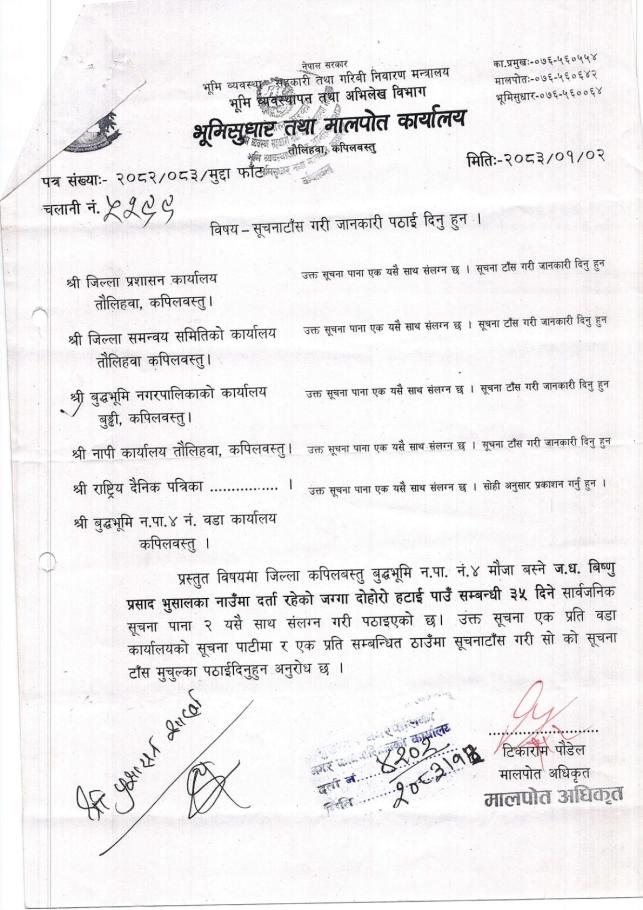 नेपाल सरकार
भूमि व्यवस्था सहकारी तथा गरिवी निवारण मन्त्रालय
भूमि व्यवस्थापन तथा अभिलेख विभाग
भूमिसुधार तथा मालपोत कार्यालय
तौलिहवा, कपिलवस्तु
का.प्रमुखः-०७६-५६०५५४
मालपोतः-०७६-५६०६४२
भूमिसुधार-०७६-५६००६४
मितिः-२०८३/०१/०२
पत्र संख्याः- २०८२/०८३/मुद्दा फाँट
चलानी नं. ५२९९
विषय – सूचनाटाँस गरी जानकारी पठाई दिनु हुन ।
श्री जिल्ला प्रशासन कार्यालय उक्त सूचना पाना एक यसै साथ संलग्न छ । सूचना टाँस गरी जानकारी दिनु हुन
तौलिहवा, कपिलवस्तु।
श्री जिल्ला समन्वय समितिको कार्यालय उक्त सूचना पाना एक यसै साथ संलग्न छ । सूचना टाँस गरी जानकारी दिनु हुन
तौलिहवा कपिलवस्तु।
श्री बुद्धभूमि नगरपालिकाको कार्यालय उक्त सूचना पाना एक यसै साथ संलग्न छ । सूचना टाँस गरी जानकारी दिनु हुन
बुड्डी, कपिलवस्तु।
श्री नापी कार्यालय तौलिहवा, कपिलवस्तु। उक्त सूचना पाना एक यसै साथ संलग्न छ । सूचना टाँस गरी जानकारी दिनु हुन
श्री राष्ट्रिय दैनिक पत्रिका ................ । उक्त सूचना पाना एक यसै साथ संलग्न छ । सोही अनुसार प्रकाशन गर्नु हुन ।
श्री बुद्धभूमि न.पा.४ नं. वडा कार्यालय
कपिलवस्तु ।
प्रस्तुत विषयमा जिल्ला कपिलवस्तु बुद्धभूमि न.पा. नं.४ मौजा बस्ने ज.ध. बिष्णु
प्रसाद भुसालका नाउँमा दर्ता रहेको जग्गा दोहोरो हटाई पाउँ सम्बन्धी ३५ दिने सार्वजनिक
सूचना पाना २ यसै साथ संलग्न गरी पठाइएको छ। उक्त सूचना एक प्रति वडा
कार्यालयको सूचना पाटीमा र एक प्रति सम्बन्धित ठाउँमा सूचनाटाँस गरी सो को सूचना
टाँस मुचुल्का पठाईदिनुहुन अनुरोध छ ।
दर्ता नं. ४२०२
मिति
टिकाराम पौडेल
मालपोत अधिकृत
मालपोत अधिकृत